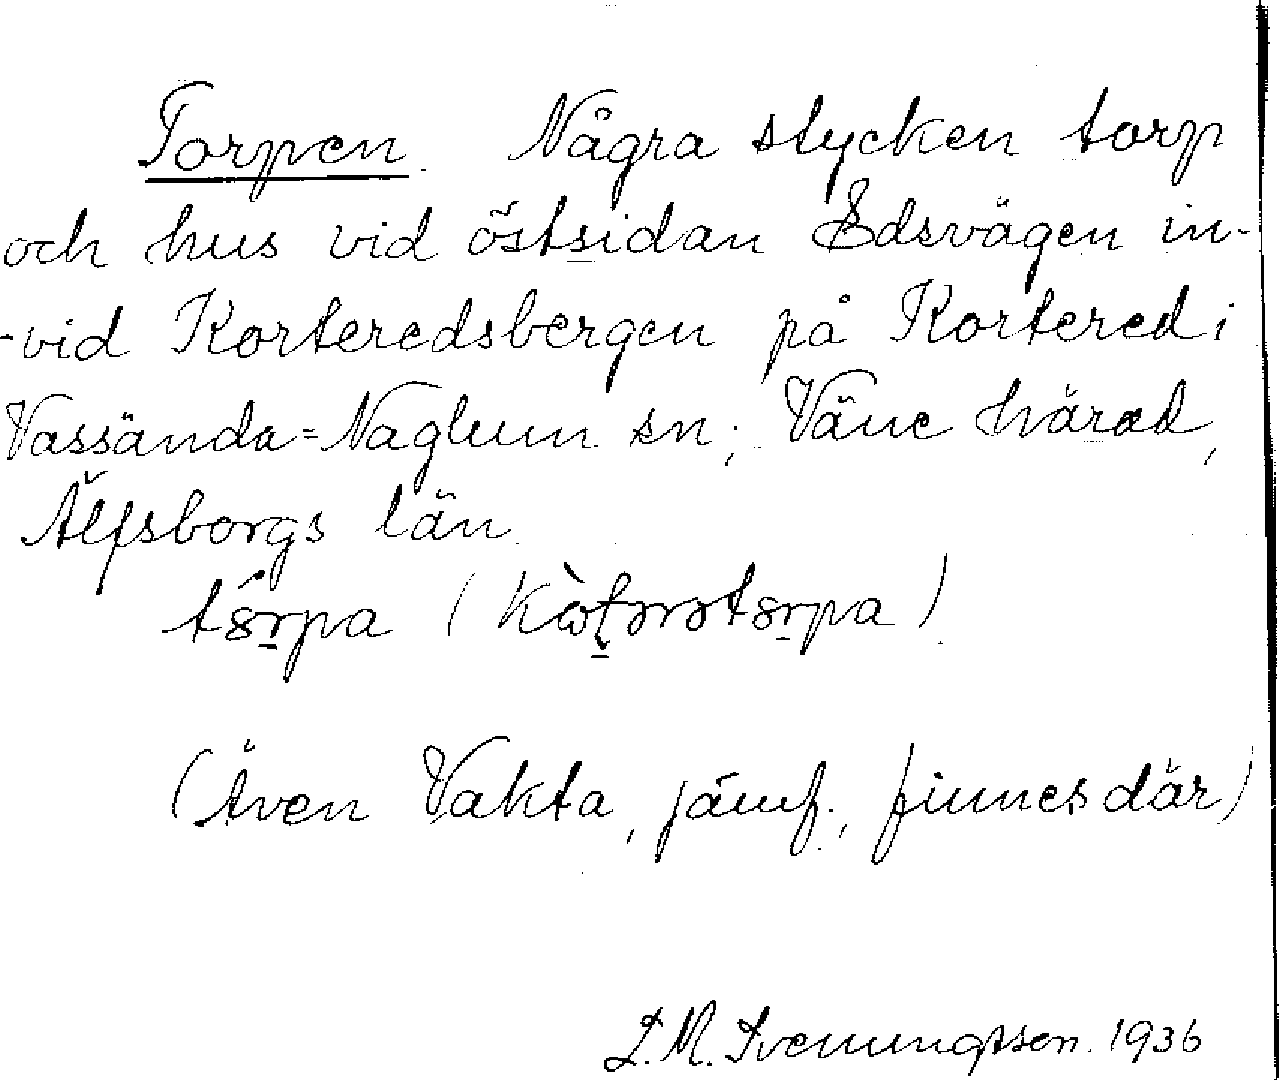 Torpen. Några stycken torp
och hus vid östsidan Edsvägen in-
-vid Korteredsbergen på Kortered i
Vassända=Naglum sn; Väne härad,
Älfsborgs län.
(Även Vakta, jämf., finnes där)
L.M. Svenungsson. 1936